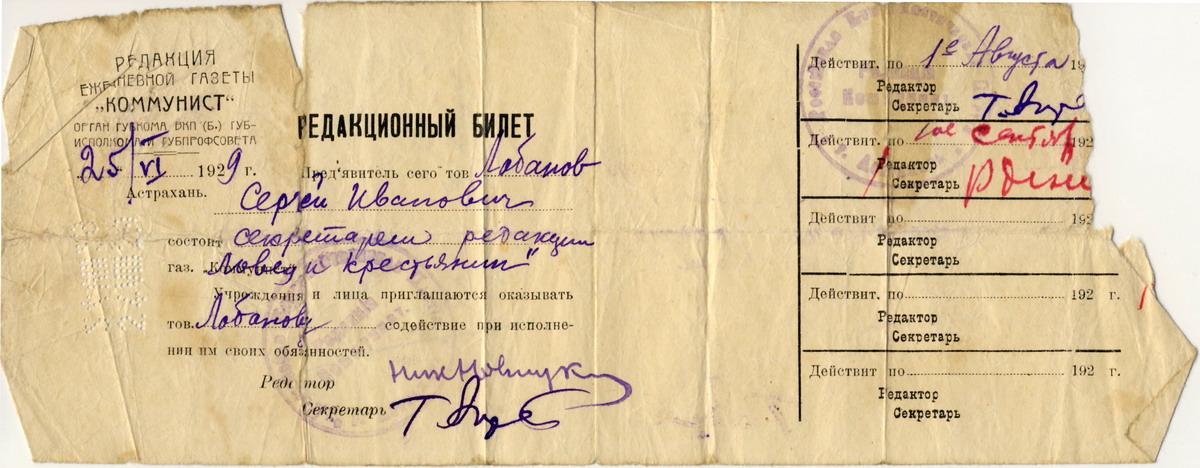 РЕДАКЦИЯ
ЕЖЕДНЕВНОЙ ГАЗЕТЫ
„КОММУНИСТ“
ОРГАН ГУБКОМА ВКП (Б.) ГУБ-
ИСПОЛКОМА И ГУБПРОФСОВЕТА
25/VI 1929 г.
Астрахань.
РЕДАКЦИОННЫЙ БИЛЕТ
Пред'явитель сего тов Лобанов
Сергей Иванович
состоит секретарем редакции
газ. „Ловец и крестьянин"
Учреждения и лица приглашаются оказывать
тов. Лобанову содействие при исполне-
нии им своих обязанностей.
Редактор
Секретарь
Действит. по 1е Августа 19
Редактор
Секретарь
Действит. по 1ое сентяб 192
Редактор
Секретарь
Действит по 192
Редактор
Секретарь
Действит. по 192 г.
Редактор
Секретарь
Действит. по 192 г.
Редактор
Секретарь